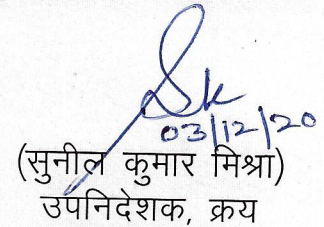 Sk
03/12/20
(सुनील कुमार मिश्रा)
उपनिदेशक, क्रय